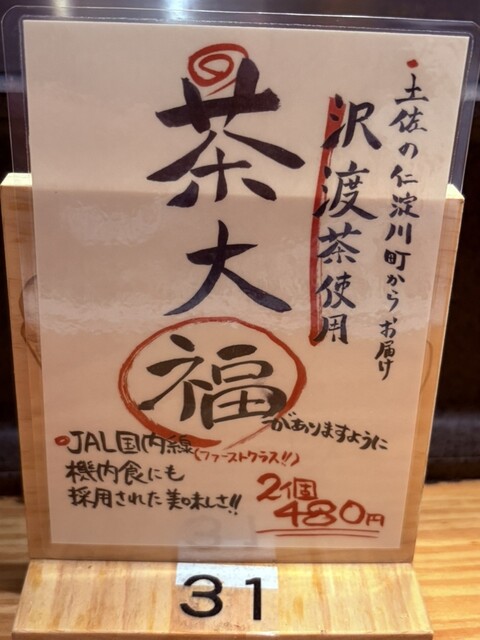 土佐の仁淀川町からお届け
沢渡茶使用
茶大福
がありますように
JAL国内線(ファーストクラス!!)
機内食にも
採用された美味しさ!!
2個
480円
31